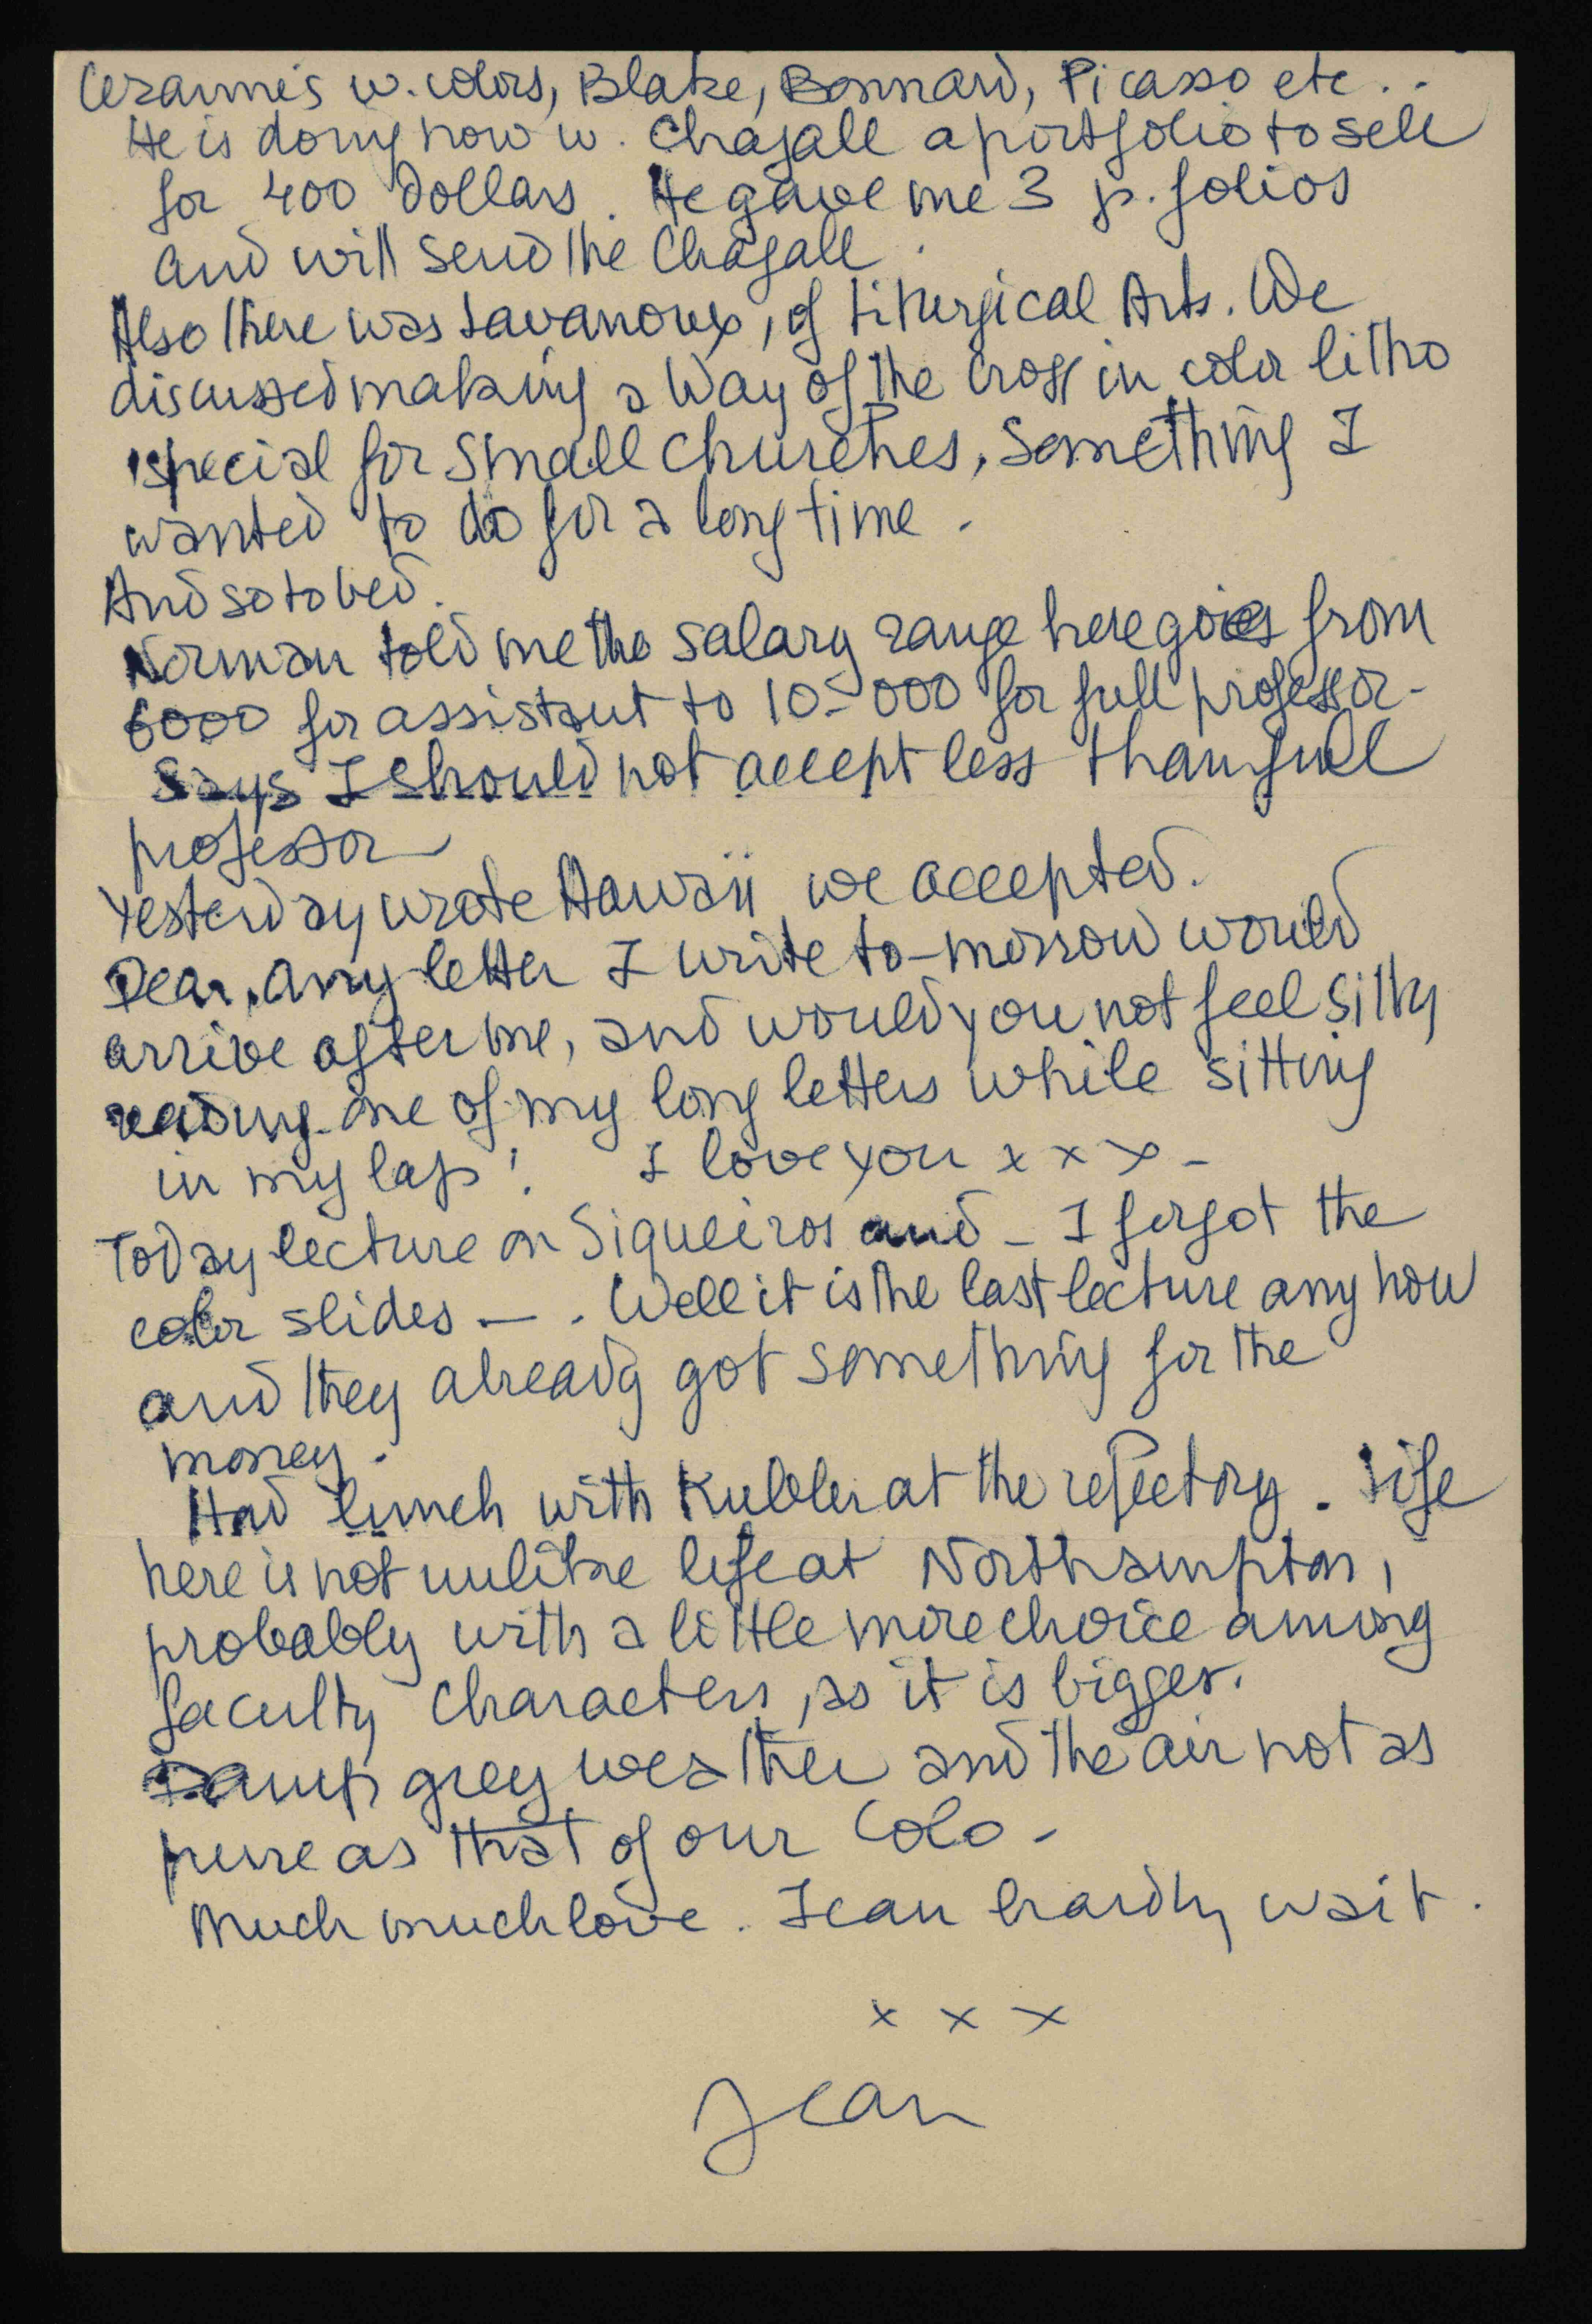 Cezanne's w. colors, Blake, Bonnard, Picasso etc..
He is doing now w. Chagall a portfolio to sell
for 400 dollars. He gave me 3 p. folios
and will send the Chagall.
Also there was Lavanoux, of Liturgical Arts. We
discussed making a Way of the Cross in color litho
special for small churches, something I
wanted to do for a long time.
And so to bed.
Norman told me the salary range here goes from
6000 for assistant to 10-000 for full professor-
Says I should not accept less than full
professor
Yesterday wrote Hawaii we accepted.
Dear, any letter I write to-morrow would
arrive after me, and would you not feel silly
reading one of my long letters while sitting
in my lap! I love you x x x -
Today lecture on Siqueiros and - I forgot the
color slides -. Well it is the last lecture any how
and they already got something for the
money.
Had lunch with Kubler at the refectory. Life
here is not unlike life at Northampton,
probably with a little more choice among
faculty characters, as it is bigger.
Damp grey weather and the air not as
pure as that of our Colo-
Much much love. I can hardly wait.
x x x
Jean